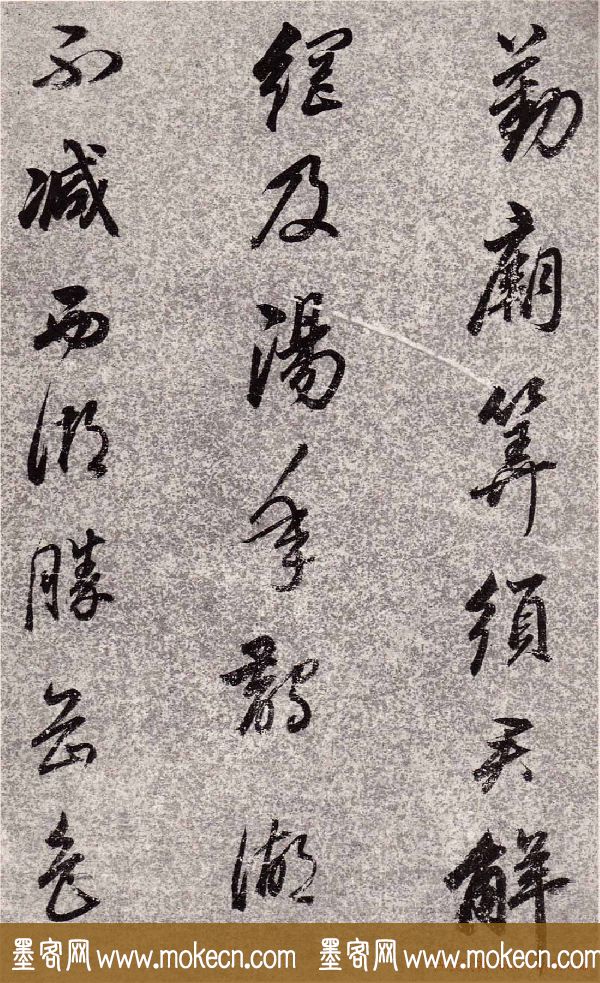 勤廟算須天解
網及湯年鸛湖
不減西湖勝無色
墨客网 www.mokecn.com 墨客网 www.mokecn.com